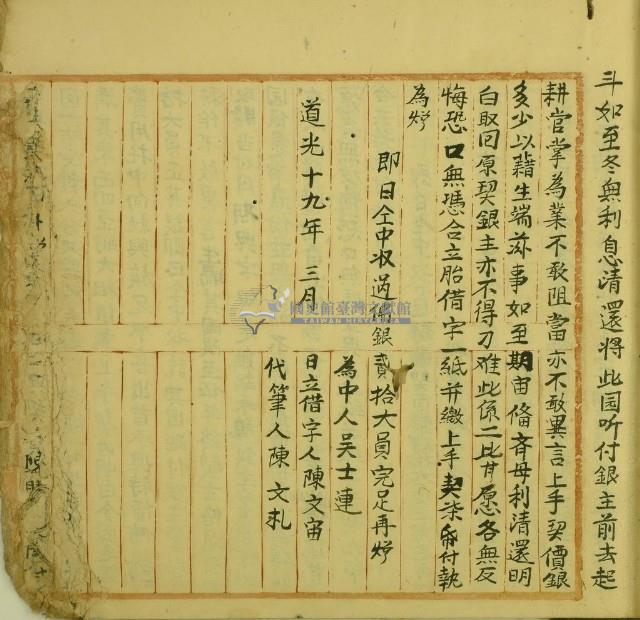 斗如至冬無利息清還將此园听付銀主前去起
耕官掌為業不敢阻當亦不敢異言上手契價銀
多少以藉生端茲事如至期宙俻齐母利清還明
白取回原契銀主亦不得刁难此係二比甘愿各無反
悔恐口無憑合立胎借字一紙并繳上手契柒紙付執
為炤
即日仝中收過佛銀貳拾大員完足再炤
為中人吳士連
道光十九年三月 日立借字人陳文宙
代筆人陳文札
國史館臺灣文獻館
TAIWAN HISTORICA